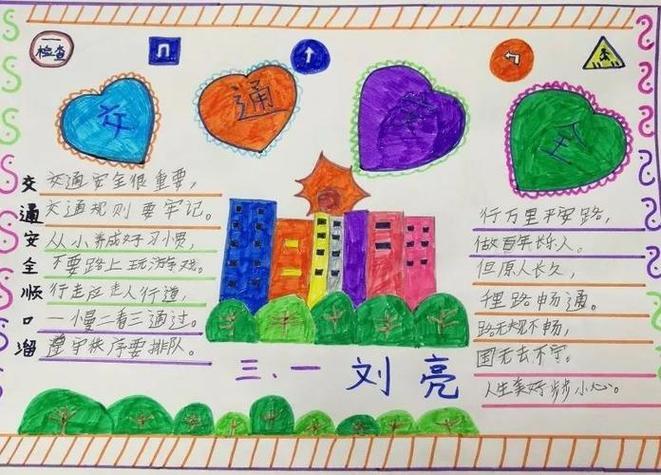 检查
交
通
安
全
交通安全顺口溜
交通安全很重要，
交通规则要牢记。
从小养成好习惯，
不要路上玩游戏。
行走应走人行道，
一慢二看三通过。
遵守秩序要排队。
行万里平安路，
做百年长乐人。
但原人长久，
程路畅通。
路无规不畅，
国无去不宁。
人生美好步步小心。
三、一 刘亮